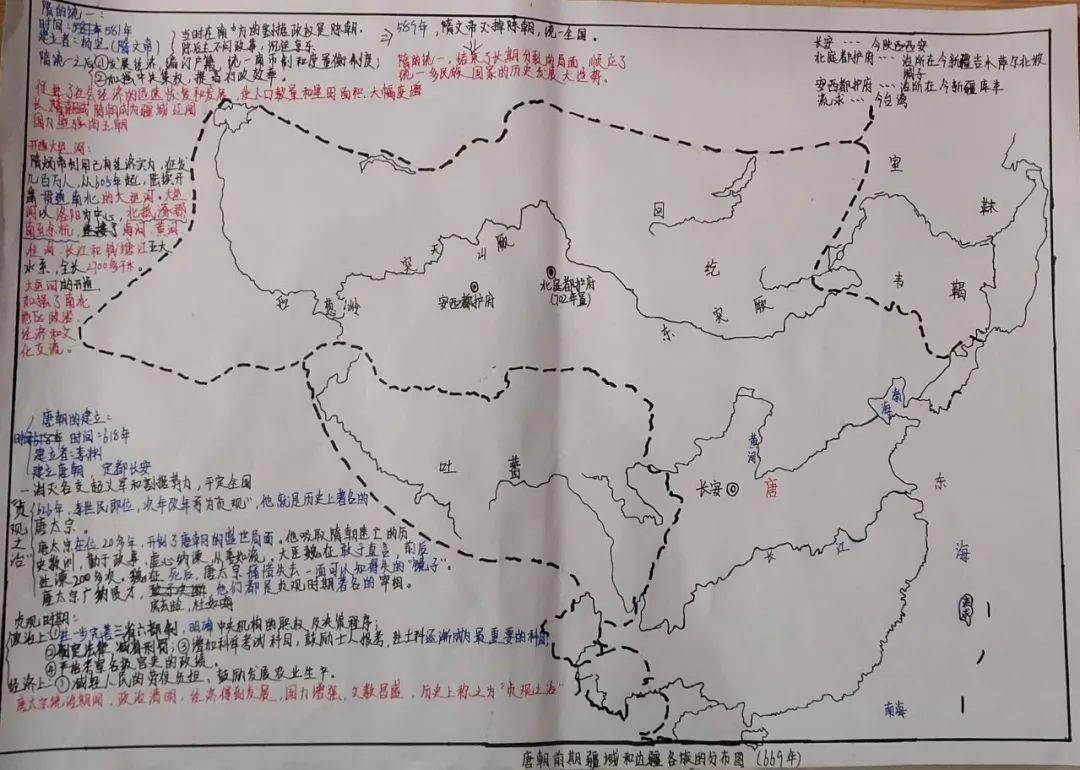 隋的统一:
时间:581年
建立者:杨坚(隋文帝)
当时在南方的割据政权是陈朝。
陈后主不问政事,沉迷享乐
589年,隋文帝灭掉陈朝,统一全国。
隋统一之后①发展经济,编订户籍,统一南币制和度量衡制度;
②加强中央集权,提高行政效率。
隋的统一,结束了长期分裂的局面,顺应了
统一多民族国家的历史发展大趋势。
促进了社会经济的迅速恢复和发展,使人口数量和垦田面积大幅度增
长,隋朝成为疆域辽阔
国力强盛的王朝
开通大运河:
隋炀帝利用已有经济实力,征发
几百万人,从605年起,陆续开
凿贯通南北的大运河。大运
河以洛阳为中心,北抵涿郡
南至余杭,连接了海河、黄河
淮河、长江和钱塘江五大
水系,全长2700多千米。
大运河的开通,
加强了南北
地区政治、
经济和文
化交流。
长安 … 今陕西西安
北庭都护府 … 治所在今新疆吉木萨尔北破
城子
安西都护府 … 治所在今新疆库车
流求 … 今台湾
室
韦
靺
鞨
回
纥
突
厥
东
突
厥
天
山
葱
岭
安西都护府
北庭都护府
(702年置)
渤
海
黄河
吐
蕃
长安
唐
东
海
长
江
南海
唐朝的建立:
时间:618年
建立者:李渊
建立唐朝,定都长安
消灭各支起义军和割据势力,平定全国
“贞
观
之
治”
626年,李世民即位,次年改年号为“贞观”,他就是历史上著名的
唐太宗。
唐太宗在位20多年,开创了唐朝的盛世局面。他吸取隋朝速亡的历
史教训,勤于政事,虚心纳谏,从善如流。大臣魏征敢于直言,前后
进谏200多次。魏征死后,唐太宗痛惜失去一面可以知得失的“镜子”。
唐太宗广纳贤才,他们都是贞观时期著名的宰相。
房玄龄,杜如晦
贞观时期:
政治上:①进一步完善三省六部制,明确中央机构的职权及决策程序;
②制定法律,减省刑罚;③增加科举考试科目,鼓励士人报考,进士科逐渐成为最重要的科目
④严格考察各级官吏的政绩。
经济上:①减轻人民的劳役负担,鼓励发展农业生产。
唐太宗统治期间,政治清明,经济得到发展,国力增强,文教昌盛,历史上称之为“贞观之治”
唐朝前期疆域和边疆各族的分布图(669年)